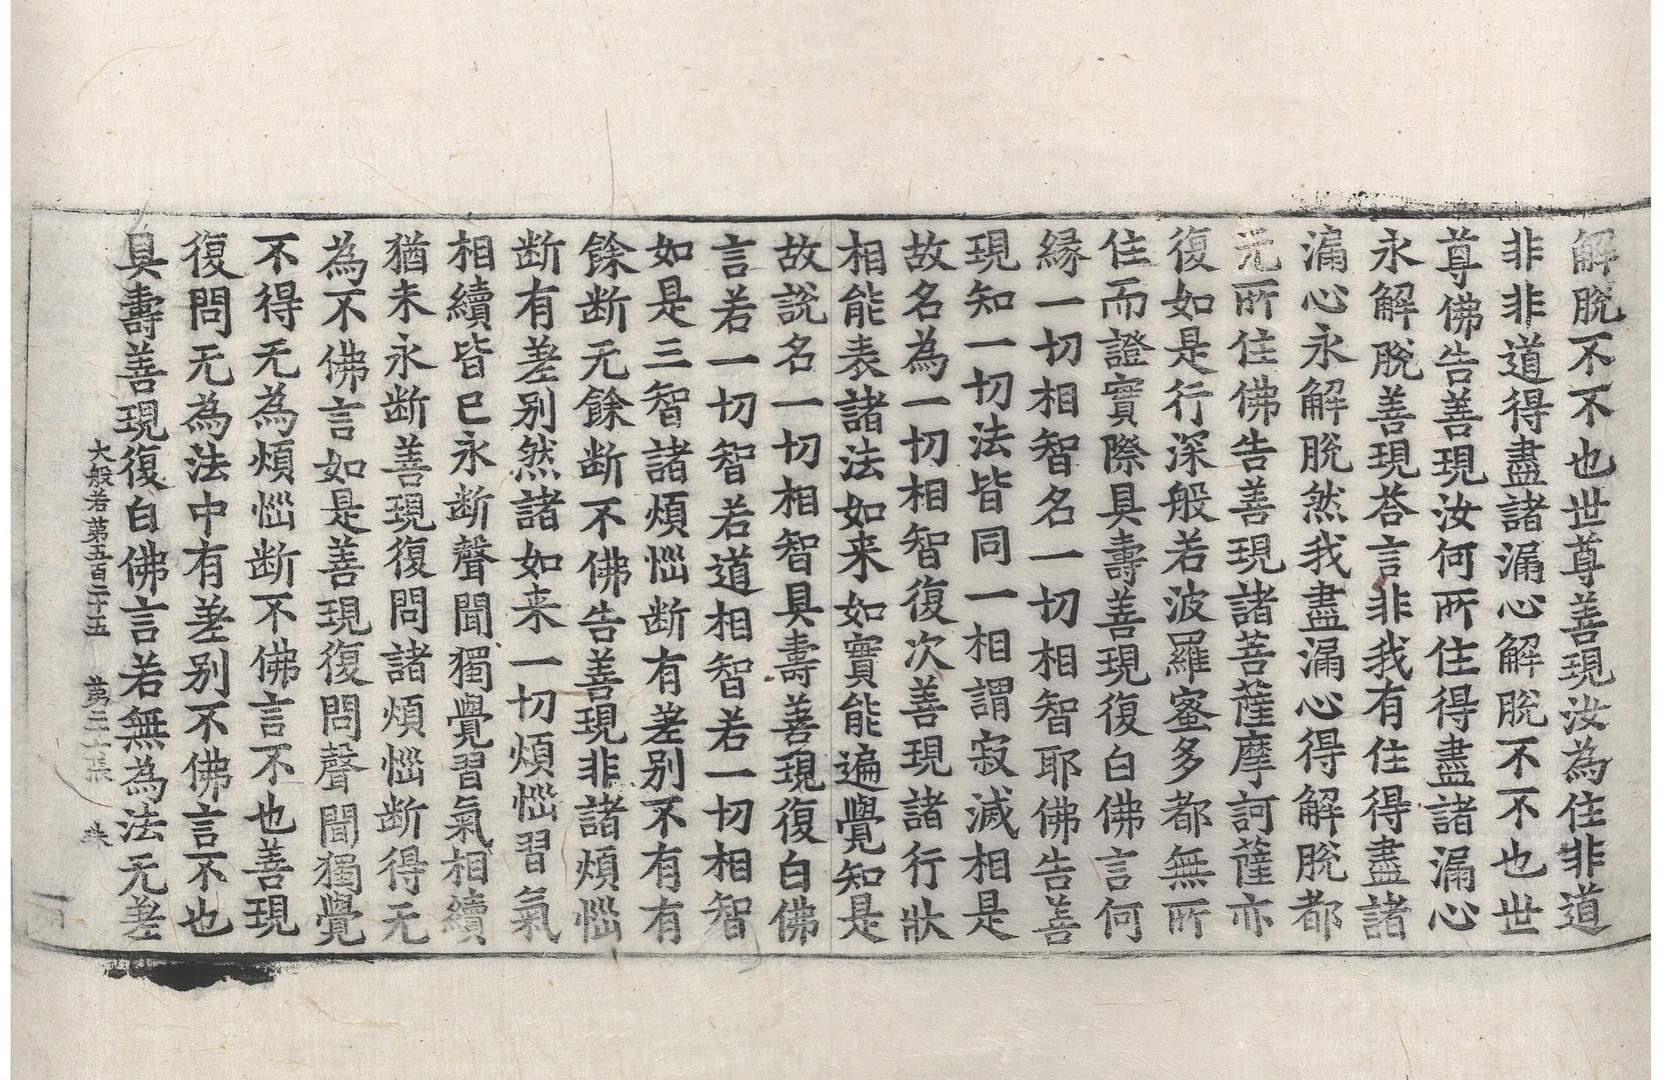 解脫不不也世尊善現汝為住非道
非非道得盡諸漏心解脫不不也世
尊佛告善現汝何所住得盡諸漏心
永解脫善現荅言非我有住得盡諸
漏心永解脫然我盡漏心得解脫都
无所住佛告善現諸菩薩摩訶薩亦
復如是行深般若波羅蜜多都無所
住而證實際具壽善現復白佛言何
緣一切相智名一切相智耶佛告善
現知一切法皆同一相謂寂滅相是
故名為一切相智復次善現諸行狀
相能表諸法如来如實能遍覺知是
故說名一切相智具壽善現復白佛
言若一切智若道相智若一切相智
如是三智諸煩惱断有差別不有有
餘断无餘断不佛告善現非諸煩惱
断有差別然諸如来一切煩惱習氣
相續皆已永断聲聞獨覺習氣相續
猶未永断善現復問諸煩惱断得无
為不佛言如是善現復問聲聞獨覺
不得无為煩惱断不佛言不也善現
復問无為法中有差別不佛言不也
具壽善現復白佛言若無為法无差
大般若第五百二十五 第二十張